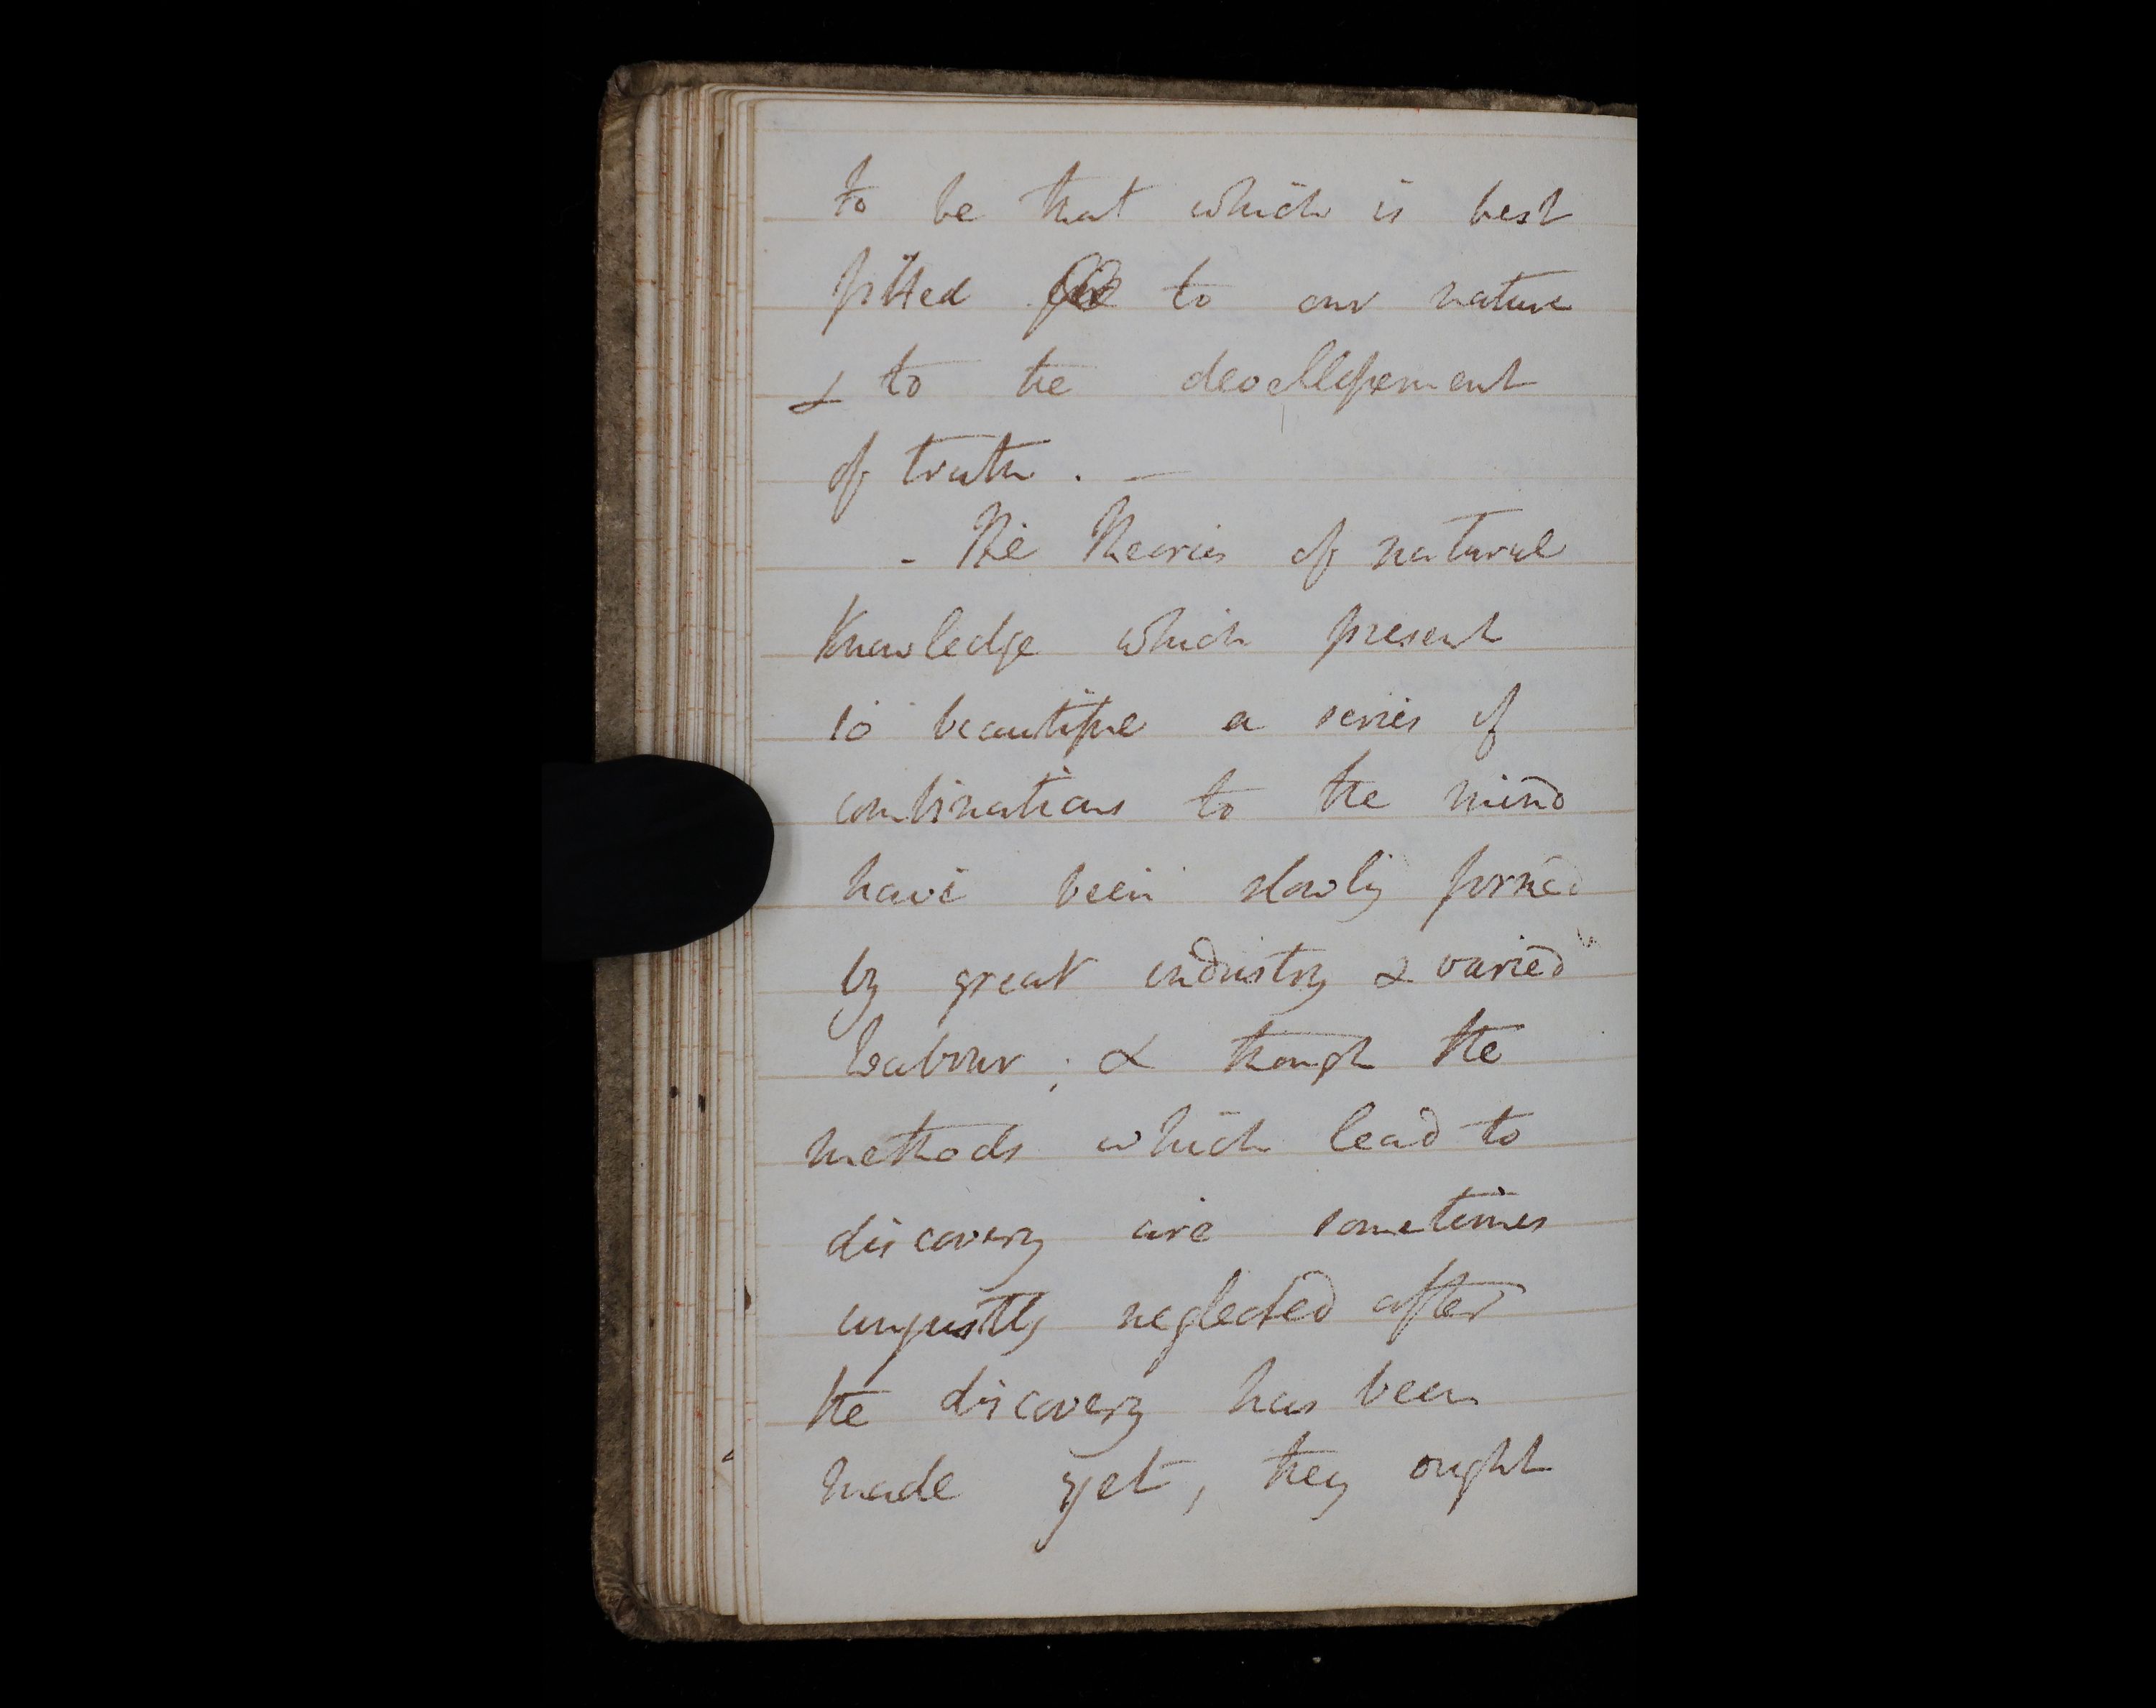 to be that which is best
fitted for to our nature
& to the devellopement
of truth. –
- The Theories of natural
Knowledge which present
so beautiful a series of
combinations to the mind
have been slowly formed
by great industry & varied
labour; & though the
methods which lead to
discovery are sometimes
unjustly neglected after
the discovery has been
made yet, they ought